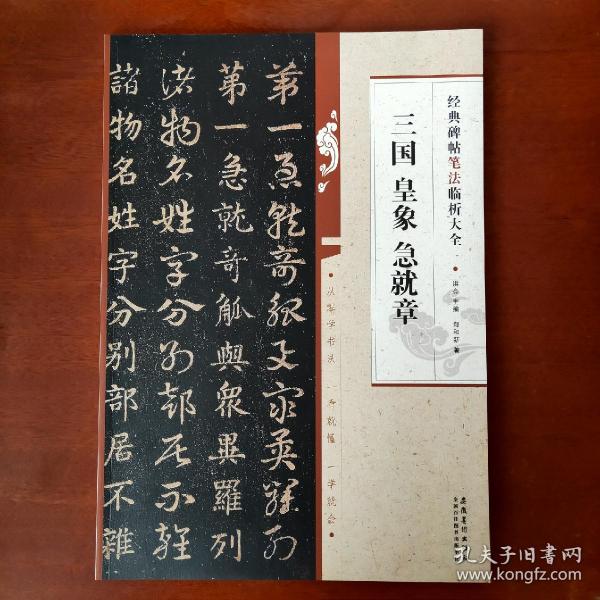 经典碑帖笔法临析大全
三国 皇象 急就章
主编 著
第一急就奇觚與衆異羅列
第一急就奇觚與衆異羅列
諸物名姓字分別部居不雜
諸物名姓字分別部居不雜
从零学书法 一看就懂 一学就会
安徽美术出版社
全国百佳图书出版单位
孔夫子旧书网
www.kongfz.com